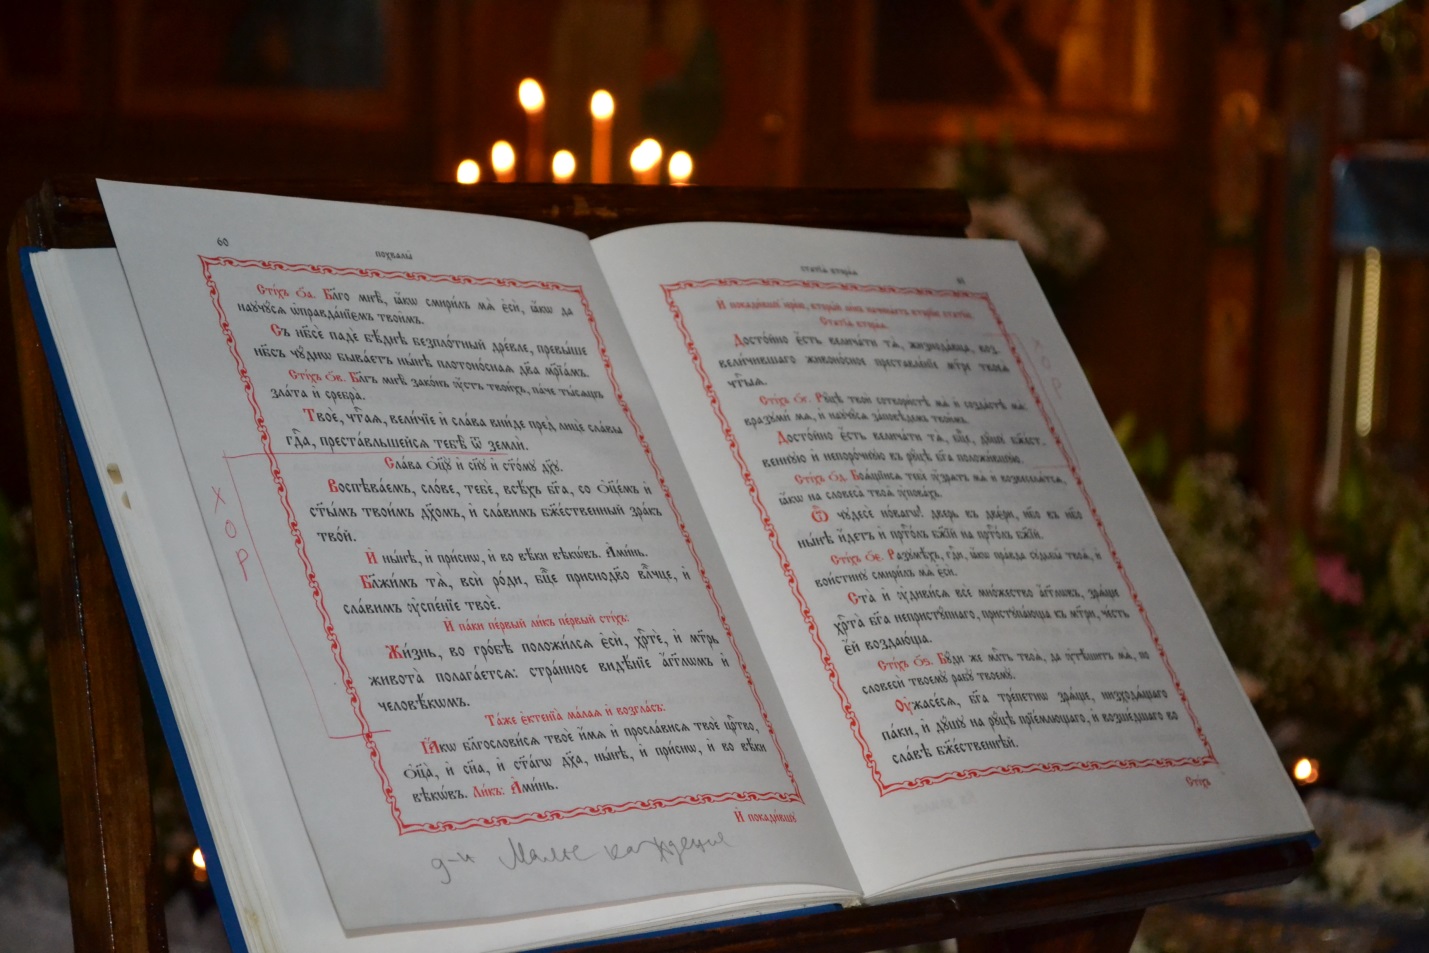 60
похвалы̀
Сті́хъ о҃а. Бл҃го мнѣ̀, ꙗ҆́кѡ смири́лъ мѧ̀ є҆сѝ, ꙗ҆́кѡ да
наꙋчꙋ́сѧ ѡ҆правда́нїємъ твои̑мъ.
Съ нб҃сѐ падѐ бѣ́днѣ безпло́тный дре́вле, превы́ше
нб҃съ чꙋ́днѡ быва́етъ ны́нѣ плотоно́сная два҃ мр҃і́амъ.
Сті́хъ о҃в. Бл҃гъ мнѣ̀ зако́нъ ᲂу҆́стъ твои́хъ, па́че ты́сѧщъ
зла́та и҆ сребра̀.
Твоѐ, чⷭ҇таѧ, вели́чїе и҆ сла́ва вни́де пред̾ лицѐ сла́вы
гдⷭ҇а, преста́вльшейсѧ тебѣ̀ ѿ землѝ.
Сла́ва ѻ҆ц҃ꙋ̀ и҆ сн҃ꙋ и҆ ст҃о́мꙋ дх҃ꙋ.
Воспѣва́емъ, сло́ве, тебѐ, всѣ́хъ бг҃а, со ѻ҆ц҃е́мъ и҆
ст҃ы́мъ твои́мъ дх҃омъ, и҆ сла́вимъ бж҃е́ственный зра́къ
тво́й.
И҆ ны́нѣ, и҆ при́снѡ, и҆ во вѣ́ки вѣкѡ́въ. А҆ми́нь.
Бл҃жи́мъ тѧ̀, вси̑ ро́ди, бц҃е приснодв҃о вл҃чце, и҆
сла́вимъ ᲂу҆спе́нїе твоѐ.
И҆ па́ки пе́рвый ли́къ пе́рвый сті́хъ:
Жи́знь, во гро́бѣ положи́лсѧ є҆сѝ, хрⷭ҇тѐ, и҆ мт҃рь
живота̀ полага́етсѧ: стра́нное видѣ́нїе а҆́гг҃лѡмъ и҆
человѣ́кѡмъ.
Та́же є҆ктенїа̀ ма́лаѧ и҆ во́згласъ:
Ꙗ҆́кѡ бл҃гослови́сѧ твоѐ и҆́мѧ и҆ просла́висѧ твоѐ црⷭ҇тво,
ѻ҆ц҃а̀, и҆ сн҃а, и҆ ст҃а́гѡ дх҃а, ны́нѣ, и҆ при́снѡ, и҆ во вѣ́ки
вѣкѡ́въ. Ли́къ: А҆ми́нь.
И҆ покади́вшꙋ
ХОР
д-н Малое каждение
статїа̀ втора́ѧ
втори́и статїѝ.
Статїа̀ втора́ѧ.
Досто́йно є҆́сть велича́ти тѧ̀, жизнода́вца, воз
вели́чившаго живоно́сное преставле́нїе мт҃ре твоеѧ̀
чⷭ҇ты́ѧ.
Сті́хъ о҃г. Рꙋ́цѣ твоѝ сотвори́стѣ мѧ̀ и҆ созда́стѣ мѧ̀:
вразꙋми́ мѧ, и҆ наꙋчꙋ́сѧ за́повѣдемъ твои̑мъ.
Досто́йно є҆́сть велича́ти тѧ̀, бц҃е, дꙋ́шꙋ бж҃е́ст-
веннꙋю и҆ непоро́чнꙋю въ рꙋ́цѣ бг҃а положи́вшꙋю.
Сті́хъ о҃д. Боѧ́щїисѧ тебѐ ᲂу҆́зрѧтъ мѧ̀ и҆ возвеселѧ́тсѧ,
ꙗ҆́кѡ на словеса̀ твоѧ̑ ᲂу҆пова́хъ.
Ѽ чꙋдесѐ но́вагѡ! две́рь въ две́ри, нб҃о въ нб҃о
ны́нѣ и҆́детъ и҆ прⷭ҇то́лъ бж҃їй на прⷭ҇то́лъ бж҃їй.
Сті́хъ о҃є. Разꙋмѣ́хъ, гдⷭ҇и, ꙗ҆́кѡ пра́вда сꙋдьбы̑ твоѧ̑, и҆
вои́стиннꙋ смири́лъ мѧ̀ є҆сѝ.
Ста̀ и҆ ᲂу҆диви́сѧ все мно́жество а҆́гг҃лѡвъ, зрѧ́ще
хрⷭ҇та̀ бг҃а непристꙋ́пнаго, пристꙋпа́юща къ мт҃ри, че́сть
є҆́й воздаю́ща.
Сті́хъ о҃ѕ. Бꙋ́ди же млⷭ҇ть твоѧ̀, да ᲂу҆тѣ́шитъ мѧ̀, по
словесѝ твоемꙋ̀ рабꙋ̀ твоемꙋ̀.
Оу҆жасе́сѧ, бг҃а тре́петнѡ зрѧ́ще, низходѧ́щаго
па́ки, и҆ дꙋ́шꙋ на рꙋ́цѣ прїе́млющаго, и҆ возше́дшаго во
сла́вѣ бж҃е́ственнѣй.
Сті́хъ
ХОР